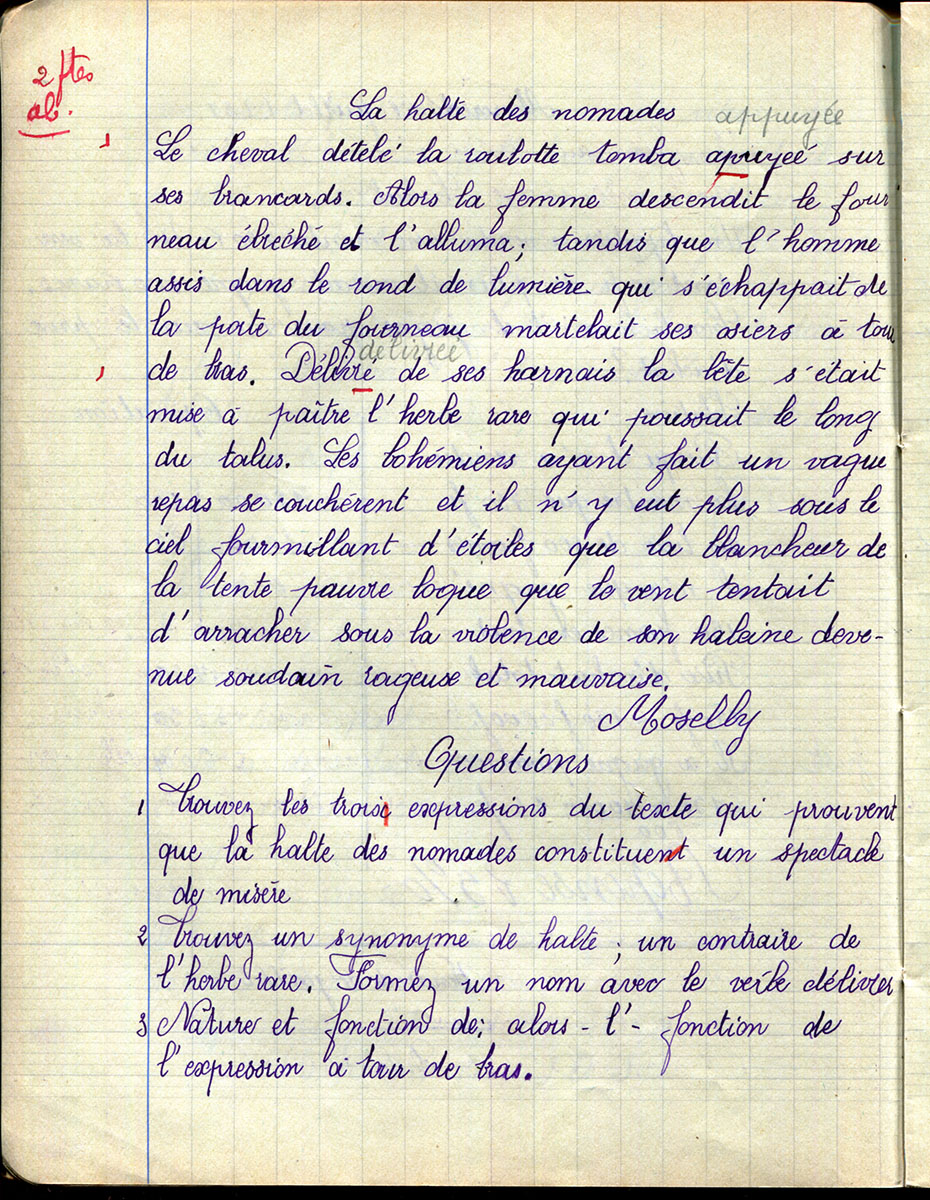 2 ftes
ab.
La halte des nomades appuyée
Le cheval dételé la roulotte tomba apuyeé sur
ses brancards. Alors la femme descendit le four
neau ébréché et l'alluma; tandis que l'homme
assis dans le rond de lumière qui s'échappait de
la pote du fourneau martelait ses osiers à tour
délivrée
de bras. Délivré de ses harnais la bête s'était
mise à paître l'herbe rare qui poussait le long
du talus. Les bohémiens ayant fait un vague
repas se couchérent et il n'y eut plus sous le
ciel fourmillant d'étoiles que la blancheur de
la tente pauvre loque que le vent tentait
d'arracher sous la violence de son haleine deve-
nue soudain rageuse et mauvaise.
Moselly
Questions
1 Trouvez les trois expressions du texte qui prouvent
que la halte des nomades constituent un spectacle
de misère
2 Trouvez un synonyme de halte; un contraire de
l'herbe rare. Formez un nom avec le verbe délivrer
3 Nature et fonction de: alors - l' - fonction de
l'expression à tour de bras.